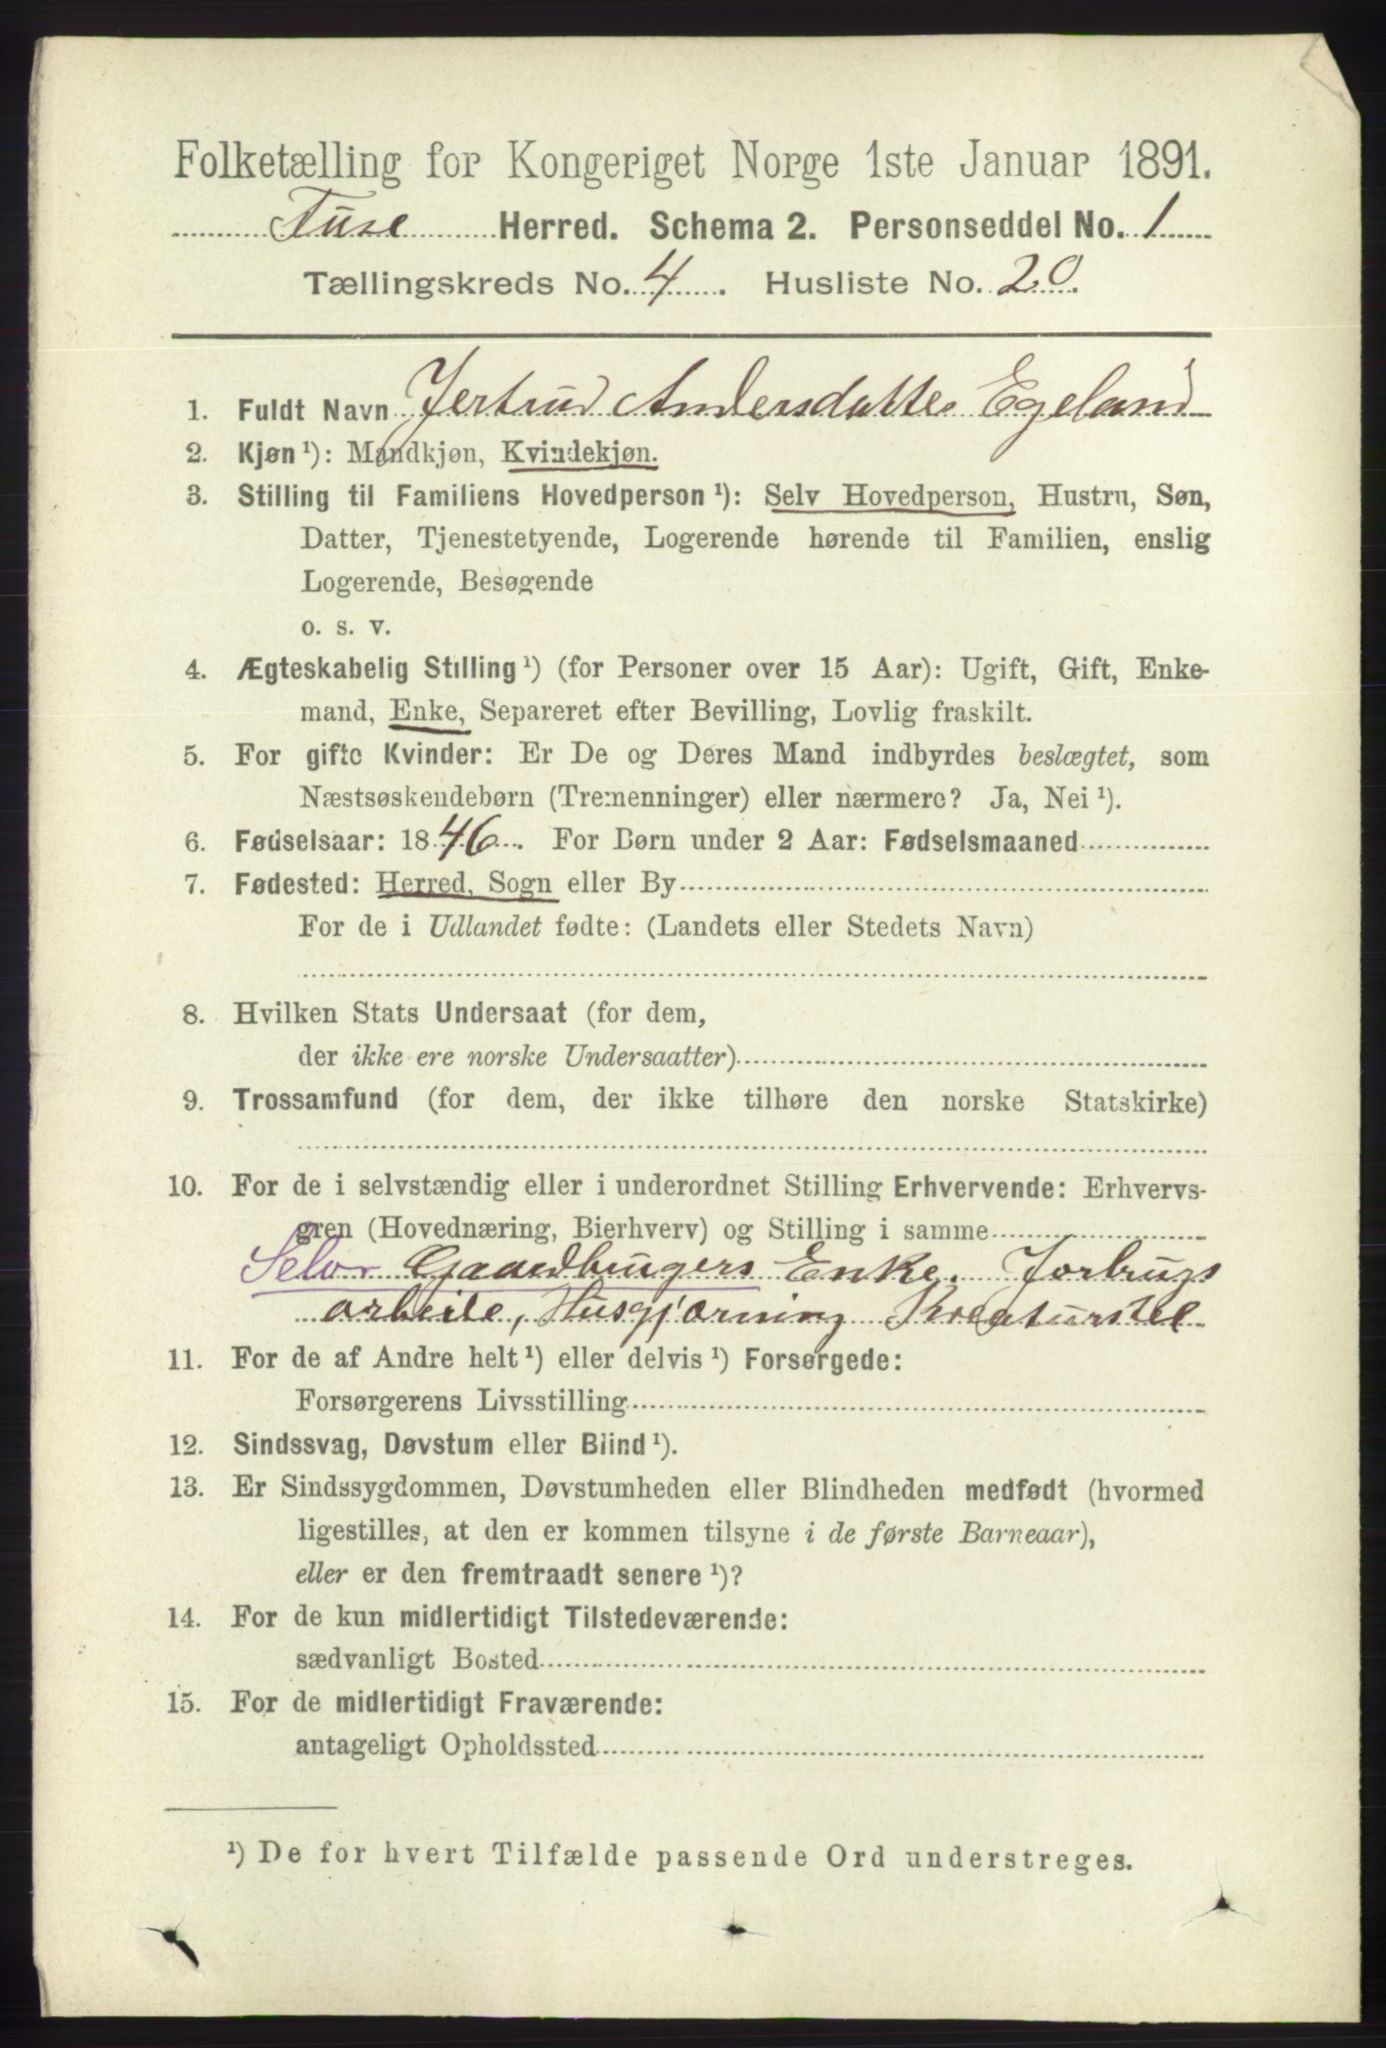 Folketælling for Kongeriget Norge 1ste Januar 1891.
Fuse Herred. Schema 2. Personseddel No. 1
Tællingskreds No. 4. Husliste No. 20.
1. Fuldt Navn Jertrud Andersdatter Egeland
2. Kjøn ¹): Mandkjøn, Kvindekjøn.
3. Stilling til Familiens Hovedperson ¹): Selv Hovedperson, Hustru, Søn,
Datter, Tjenestetyende, Logerende hørende til Familien, enslig
Logerende, Besøgende
o. s. v.
4. Ægteskabelig Stilling ¹) (for Personer over 15 Aar): Ugift, Gift, Enke-
mand, Enke, Separeret efter Bevilling, Lovlig fraskilt.
5. For gifte Kvinder: Er De og Deres Mand indbyrdes beslægtet, som
Næstsøskendebørn (Tremenninger) eller nærmere? Ja, Nei ¹).
6. Fødselsaar: 1846. For Børn under 2 Aar: Fødselsmaaned
7. Fødested: Herred, Sogn eller By
For de i Udlandet fødte: (Landets eller Stedets Navn)
8. Hvilken Stats Undersaat (for dem,
der ikke ere norske Undersaatter)
9. Trossamfund (for dem, der ikke tilhøre den norske Statskirke)
10. For de i selvstændig eller i underordnet Stilling Erhvervende: Erhvervs-
gren (Hovednæring, Bierhverv) og Stilling i samme
Selv Gaardbrugers Enke. Jorbrugs
arbeide, Husgjørning Kreaturstel
11. For de af Andre helt ¹) eller delvis ¹) Forsørgede:
Forsørgerens Livsstilling
12. Sindssvag, Døvstum eller Blind ¹).
13. Er Sindssygdommen, Døvstumheden eller Blindheden medfødt (hvormed
ligestilles, at den er kommen tilsyne i de første Barneaar),
eller er den fremtraadt senere ¹)?
14. For de kun midlertidigt Tilstedeværende:
sædvanligt Bosted
15. For de midlertidigt Fraværende:
antageligt Opholdssted
¹) De for hvert Tilfælde passende Ord understreges.